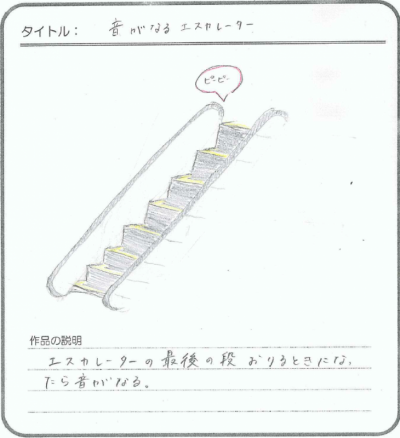 タイトル： 音がなるエスカレーター
ピーピー
作品の説明
エスカレーターの最後の段おりるときにな、
たら音がなる。